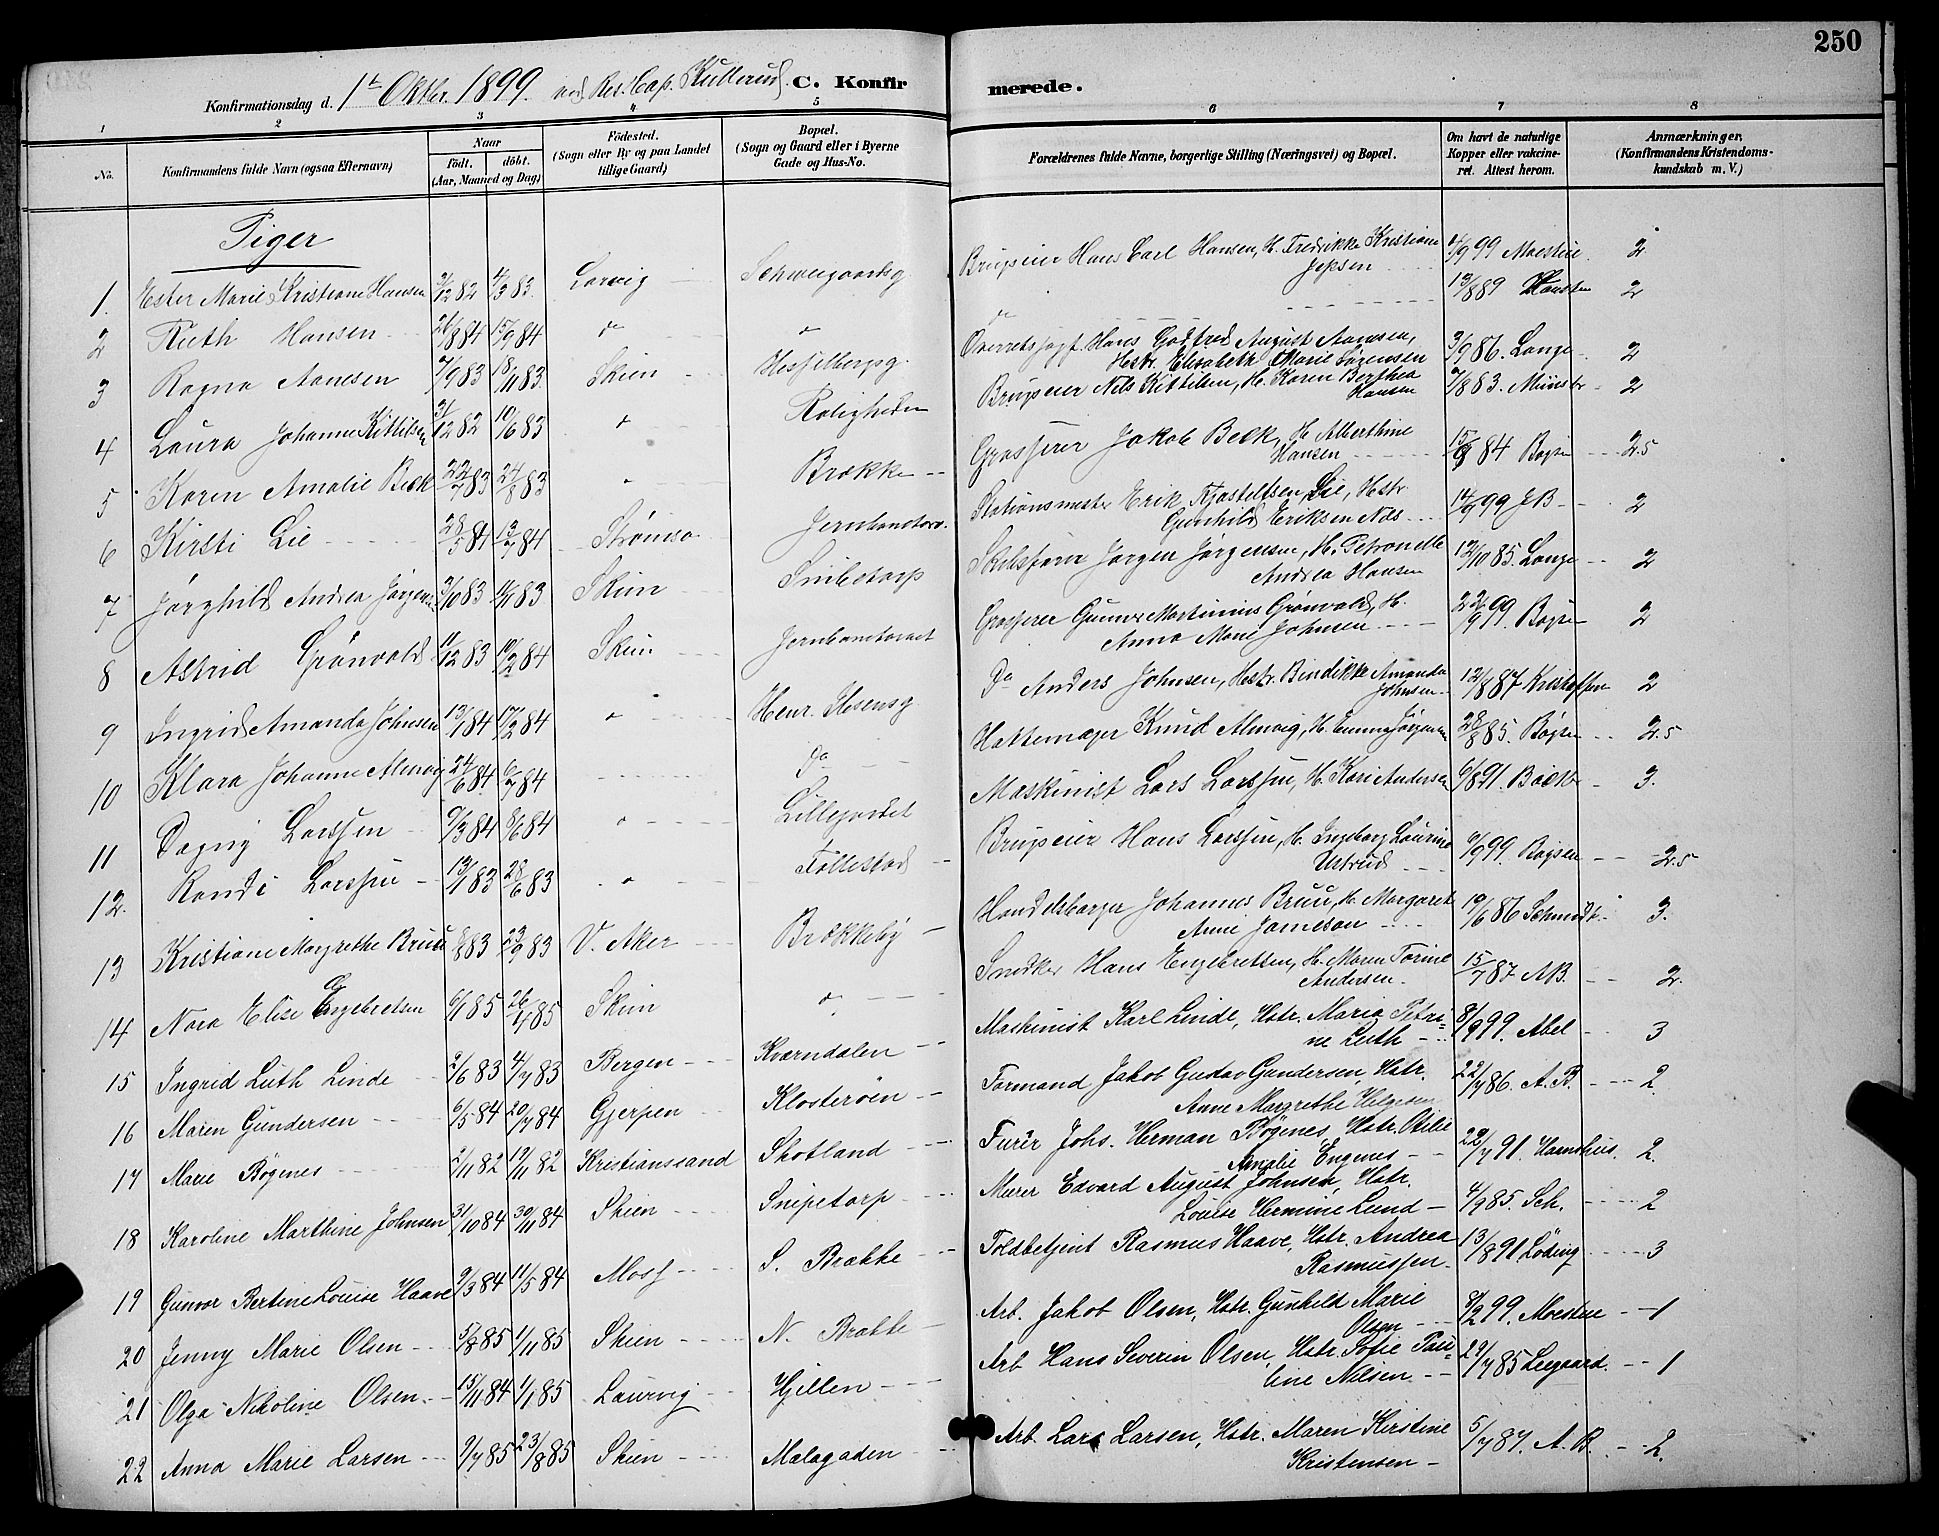 250
Konfirmationsdag d. 1ste Oktbr. 1899. ved Res. Cap. Kullerud. C. Konfir merede.
1 2 3 4 5 6 7 8
No.
Konfirmandens fulde Navn (ogsaa Efternavn)
Naar
født. døbt.
(Aar, Maaned og Dag)
Födested.
(Sogn eller By og paa Landet
tillige Gaard)
Bopæl.
(Sogn og Gaard eller i Byerne
Gade og Hus-No.
Forældrenes fulde Navne, borgerlige Stilling (Næringsvei) og Bopæl.
Om havt de naturlige
Kopper eller vakcine-
ret. Attest herom.
Anmærkninger.
(Konfirmandens Kristendoms-
kundskab m. V.)
Piger
1. Ester Marie Kristiane Hansen 3/12 82 4/3 83. Larvig Schweigaardsg Brugseier Hans Carl Hansen, H. Fredrikke Kristiane Jepsen 6/9 99 Moestue 2
2 Ruth Hansen 26/8 84 15/9 84 do do 13/8 89 2
3 Ragna Aanesen 7/9 83 18/11 83. Skien Hesselbergsg. Overretssagf. Hans Godfred August Aanesen, Hstr. Elisabeth Marie Sørensen 3/9 86. Lange 2
4 Laura Johanne Kittilsen 31/12 82 10/6 83 do Roligheden Brugseier Nils Kittilsen, H. Karen Berthea Hansen 7/8 83. Münster 2
5 Karen Amalie Beck 22/7 83 24/8 83 " Brække Grosserer Jakob Beck, H. Alberthine Hansen 15/8 84 Bøgse 2.5
6 Kirsti Lie 28/5 84 13/7 84 Strømsø Jernbanetorv. Stationsmester Erik Kjøstelfsen Lie, Hstr Gunhild Eriksen Næs 14/9 99 JB 2
7 Jørghild Andrea Jørgensen 3/10 83 11/11 83 Skien Snibetorp Skibsfører Jørgen Jørgensen, H. Petronelle Andrea Hansen 12/10 85. Lange 2
8 Astrid Grönvold 11/12 83 10/2 84 Skien Jernbanetorvet Grosserer Gunnar Martinius Grønvold, H. Anna Marie Johnsen 22/9 99. Bøgse 2
9 Ingrid Amanda Johnsen 13/1 84 17/2 84 " Henr. Ibsensg Do Anders Johnsen, Hstr. Bendikke Amanda Johnsen 12/8 87 Kristoffersen 2
10 Klara Johanne Almvig 24/6 84 6/7 84 Do Hattemager Knud Almvig, H. Emma Jørgensen 28/8 85. Bøgse 2.5
11 Dagny Larssen 9/3 84 8/6 84 " Lillegaardet Maskinist Lars Larssen, H. Kari Andersen 6/8 91. Boeck 3.
12. Randi Larssen 13/1 83 28/6 83 " Follestad Brugseier Hans Larssen, H. Ingeborg Laurine Ustrud 6/9 99. Bøgsen 2.5
13 Kristiane Margrethe Bruu 8/8 83 23/9 83 V. Aker Brækkeby Handelsborger Johannes Bruu, H. Margaret Anne Jameson 19/6 86 Schmidt 3.
14 Nora Elise Engebretsen 6/1 85 26/4 85 Skien do Snedker Hans Engebretsen, H. Maren Torine Andersen. 15/7 87 AB. 2.
15 Ingrid Luth Linde 2/6 83 4/7 83 Bergen Kværndalen Maskinist Karl Linde, Hstr. Maria Petrine Luth 8/9 99. Abel 3
16 Maren Gundersen 6/5 84 20/7 84 Gjerpen Klosterøen Formand Jakob Gustav Gundersen, Hstr. Anne Margrethe Helgesen 22/7 86. A. B. 2.
17 Marie Bøgenes 2/11 82 19/11 82 Kristianssand Skotland Furer Johs. Herman Bøgenes, Hstr. Otilie Amalie Engenes 22/7 91. Hamshus. 2.
18 Karoline Marthine Johnsen 31/10 84 30/11 84 Skien Snipetorp Murer Edvard August Johnsen, Hstr. Louise Hermine Lund 4/9 85. Sch. 2
19 Gunvor Bertine Louise Haave 9/3 84 11/5 84 Moss S. Brække Toldbetjent Rasmus Haave, Hstr. Andrea Rasmussen 13/8 91 Löding 3
20 Jenny Marie Olsen 5/8 85 1/11 85 Skien N. Brække Arb. Jakob Olsen, Hstr. Gunhild Marie Olsen 8/2 99. Moestue 1
21 Olga Nikoline Olsen 15/11 84 1/1 85 Laurvig Hjellen Arb Hans Severin Olsen, Hstr. Sofie Pauline Nilsen 29/7 85 Leegaard. 1
22 Anna Marie Larsen 9/7 85 23/8 85 Skien Malagaden Arb. Lars Larsen, Hstr. Maren Kirstine Kristensen 5/7 87. A. B. 2.